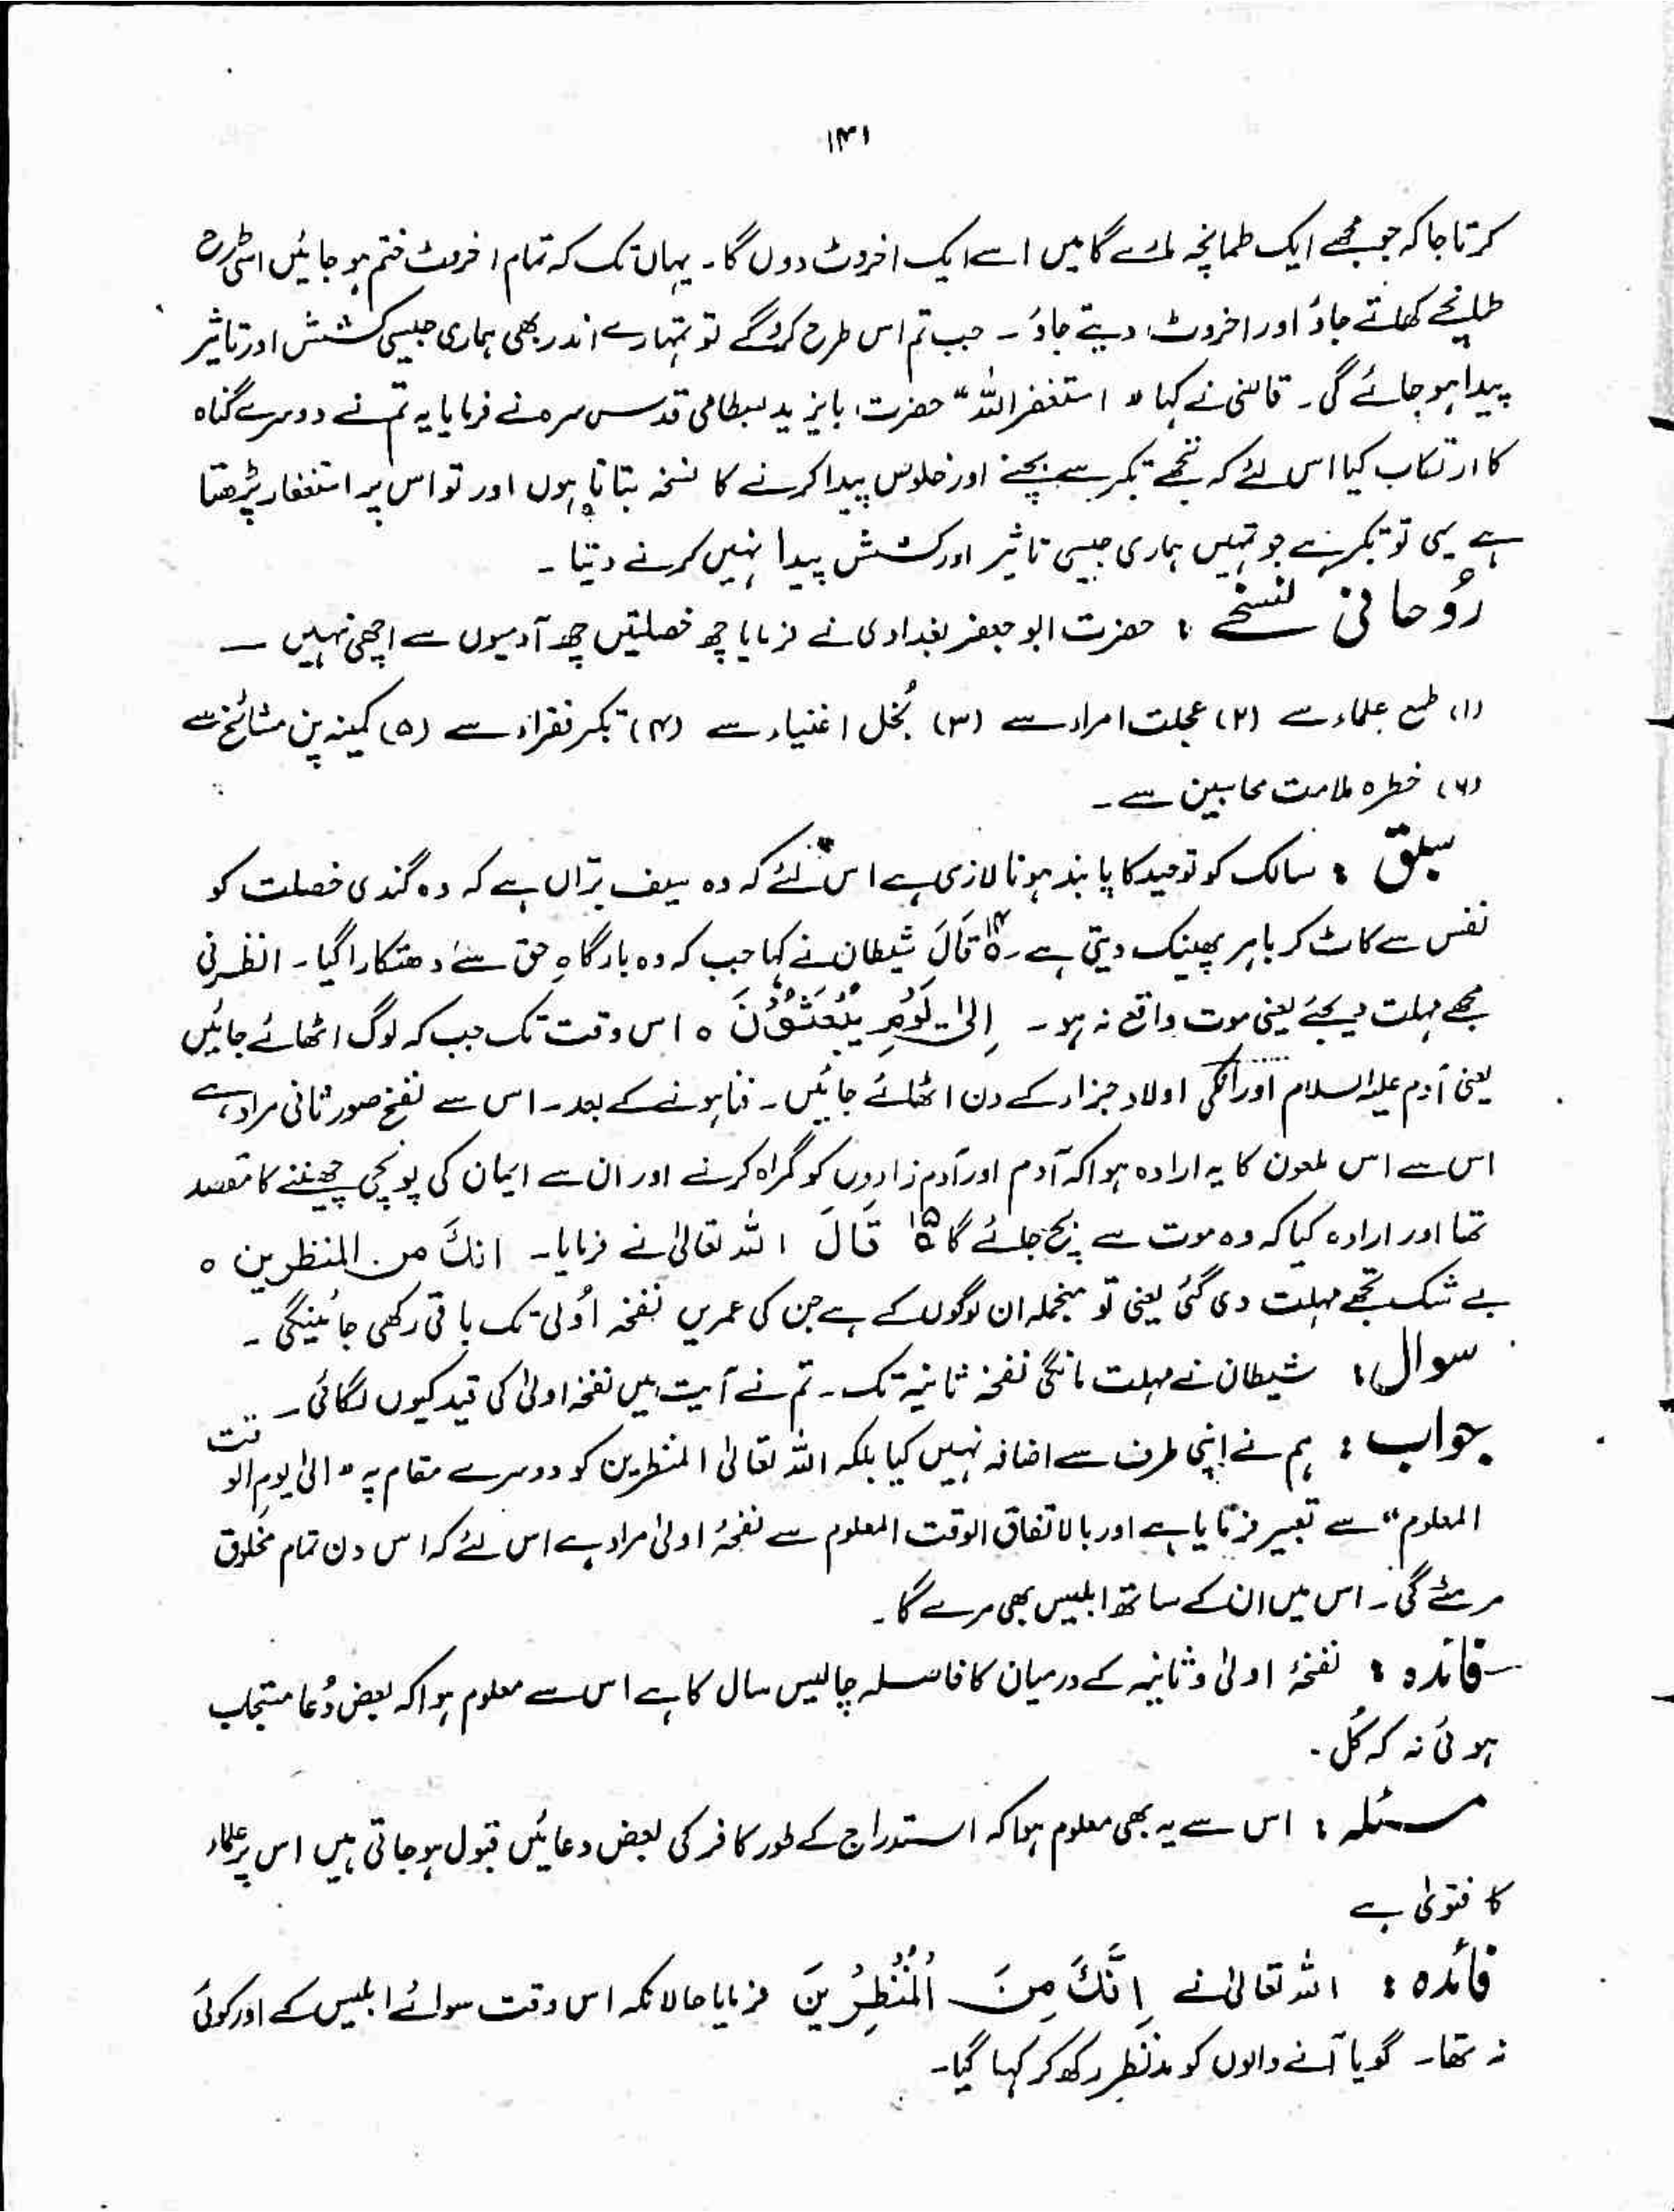 ۱۴۱
کرتا جا کہ جو مجھے ایک طمانچہ مارے گا میں اسے ایک اخروٹ دوں گا۔ یہاں تک کہ تمام اخروٹ ختم ہو جائیں اسی طرح
طمانچے کھاتے جاؤ اور اخروٹ دیتے جاؤ۔ جب تم اس طرح کرو گے تو تمہارے اندر بھی ہماری جیسی کشش اور تاثیر
پیدا ہو جائے گی۔ قاضی نے کہا "استغفر اللہ" حضرت بایزید بسطامی قدس سرہ نے فرمایا یہ تم نے دوسرے گناہ
کا ارتکاب کیا اس لئے کہ تجھے تکبر سے بچنے اور خلوص پیدا کرنے کا نسخہ بتاتا ہوں اور تو اس پر استغفار پڑھتا
ہے یہی تو تکبر ہے جو تمہیں ہماری جیسی تاثیر اور کشش پیدا نہیں کرنے دیتا۔
رُوحانی نسخے : حضرت ابو جعفر بغدادی نے فرمایا چھ خصلتیں چھ آدمیوں سے اچھی نہیں ــ
(۱) طمع علماء سے (۲) عجلت امراء سے (۳) بُخل اغنیاء سے (۴) تکبر فقراء سے (۵) کمینہ پن مشائخ سے
(۶) خطرہ ملامت محابین سے۔
سبق : سالک کو توحید کا پابند ہونا لازمی ہے اس لئے کہ وہ سیف بّراں ہے کہ وہ گندی خصلت کو
نفس سے کاٹ کر باہر پھینک دیتی ہے۔ ۱۴؁ قَالَ شیطان نے کہا جب کہ وہ بارگاہِ حق سے دھتکارا گیا۔ انظرنی
مجھے مہلت دیجئے یعنی موت واقع نہ ہو۔ اِلیٰ یَوْمِ یُبْعَثُوْنَ ہ اس وقت تک جب کہ لوگ اٹھائے جائیں
یعنی آدم علیہ السلام اور انکی اولاد جزاء کے دن اٹھائے جائیں۔ فنا ہونے کے بعد۔ اس سے نفخ صور ثانی مراد ہے
اس سے اس ملعون کا یہ ارادہ ہوا کہ آدم اور آدم زادوں کو گمراہ کرنے اور ان سے ایمان کی پونجی چھیننے کا مقصد
تھا اور ارادہ کیا کہ وہ موت سے بچ جائے گا ۱۵؁ قَالَ اللہ تعالیٰ نے فرمایا۔ انکَ من المنظرین ہ
بے شک تجھے مہلت دی گئی یعنی تو منجملہ ان لوگوں کے ہے جن کی عمریں نفخہ اُولیٰ تک باقی رکھی جائینگی۔
سوال : شیطان نے مہلت مانگی نفخہ ثانیۃ تک۔ تم نے آیت میں نفخہ اولیٰ کی قید کیوں لگائی۔
جواب : ہم نے اپنی طرف سے اضافہ نہیں کیا بلکہ اللہ تعالیٰ المنظرین کو دوسرے مقام پہ "الیٰ یوم الوقت
المعلوم" سے تعبیر فرمایا ہے اور بالاتفاق الوقت المعلوم سے نفخۂ اولیٰ مراد ہے اس لئے کہ اس دن تمام مخلوق
مرمٹے گی۔ اس میں ان کے ساتھ ابلیس بھی مرے گا۔
فائدہ : نفخۂ اولیٰ و ثانیہ کے درمیان کا فاصلہ چالیس سال کا ہے اس سے معلوم ہوا کہ بعض دُعا مستجاب
ہوئی نہ کہ کُل۔
مسئلہ : اس سے یہ بھی معلوم ہوا کہ استدراج کے طور کافر کی بعض دعائیں قبول ہو جاتی ہیں اس پر علماء
کا فتویٰ ہے
فائدہ : اللہ تعالیٰ نے اِنَّکَ مِنَ الْمُنْظَرِیْنَ فرمایا حالانکہ اس وقت سوائے ابلیس کے اور کوئی
نہ تھا۔ گویا آنے والوں کو مدنظر رکھ کر کہا گیا۔